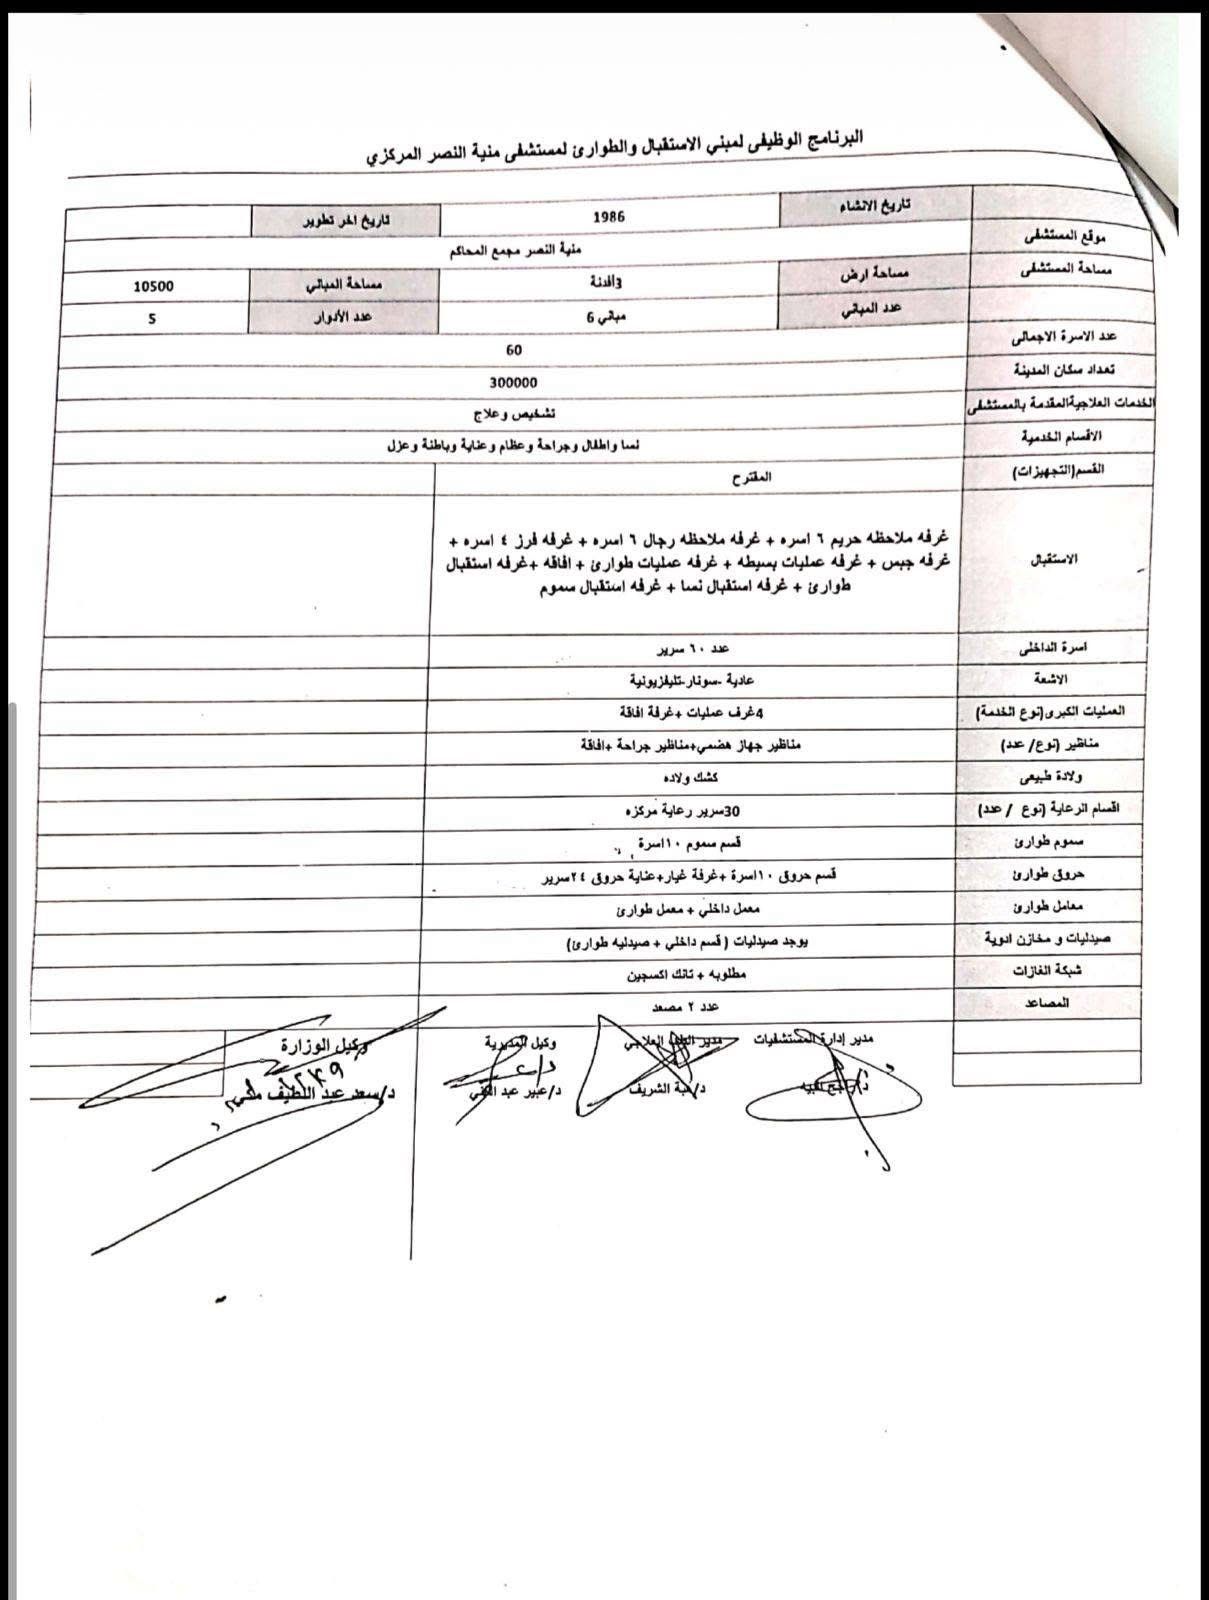 البرنامج الوظيفى لمبني الاستقبال والطوارئ لمستشفى منية النصر المركزي
تاريخ الانشاء 1986 تاريخ اخر تطوير
موقع المستشفى منية النصر مجمع المحاكم
مساحة المستشفى مساحة ارض 3أفدنة مساحة المباني 10500
عدد المباني مباني 6 عدد الأدوار 5
عدد الاسرة الاجمالى 60
تعداد سكان المدينة 300000
الخدمات العلاجيةالمقدمة بالمستشفى تشخيص وعلاج
الاقسام الخدمية نسا واطفال وجراحة وعظام وعناية وباطنة وعزل
القسم(التجهيزات) المقترح
الاستقبال
غرفه ملاحظه حريم ٦ اسره + غرفه ملاحظه رجال ٦ اسره + غرفه فرز ٤ اسره +
غرفه جبس + غرفه عمليات بسيطه + غرفه عمليات طوارئ + افاقه +غرفه استقبال
طوارئ + غرفه استقبال نسا + غرفه استقبال سموم
اسرة الداخلى عدد ٦٠ سرير
الاشعة عادية -سونار-تليفزيونية
العمليات الكبرى(نوع الخدمة) 4غرف عمليات +غرفة افاقة
مناظير (نوع/ عدد) مناظير جهاز هضمي+مناظير جراحة +افاقة
ولادة طبيعى كشك ولاده
اقسام الرعاية (نوع / عدد) 30سرير رعاية مركزه
سموم طوارئ قسم سموم ١٠اسرة
حروق طوارئ قسم حروق ١٠اسرة +غرفة غيار+عناية حروق ٢٤سرير
معامل طوارئ معمل داخلي + معمل طوارئ
صيدليات و مخازن ادوية يوجد صيدليات ( قسم داخلي + صيدليه طوارئ)
شبكة الغازات مطلوبه + تانك اكسجين
المصاعد عدد ٢ مصعد
مدير إدارة المستشفيات مدير الطب العلاجي وكيل المديرية وكيل الوزارة
د/هبة الشريف د/عبير عبد د/سعد عبد اللطيف مكي